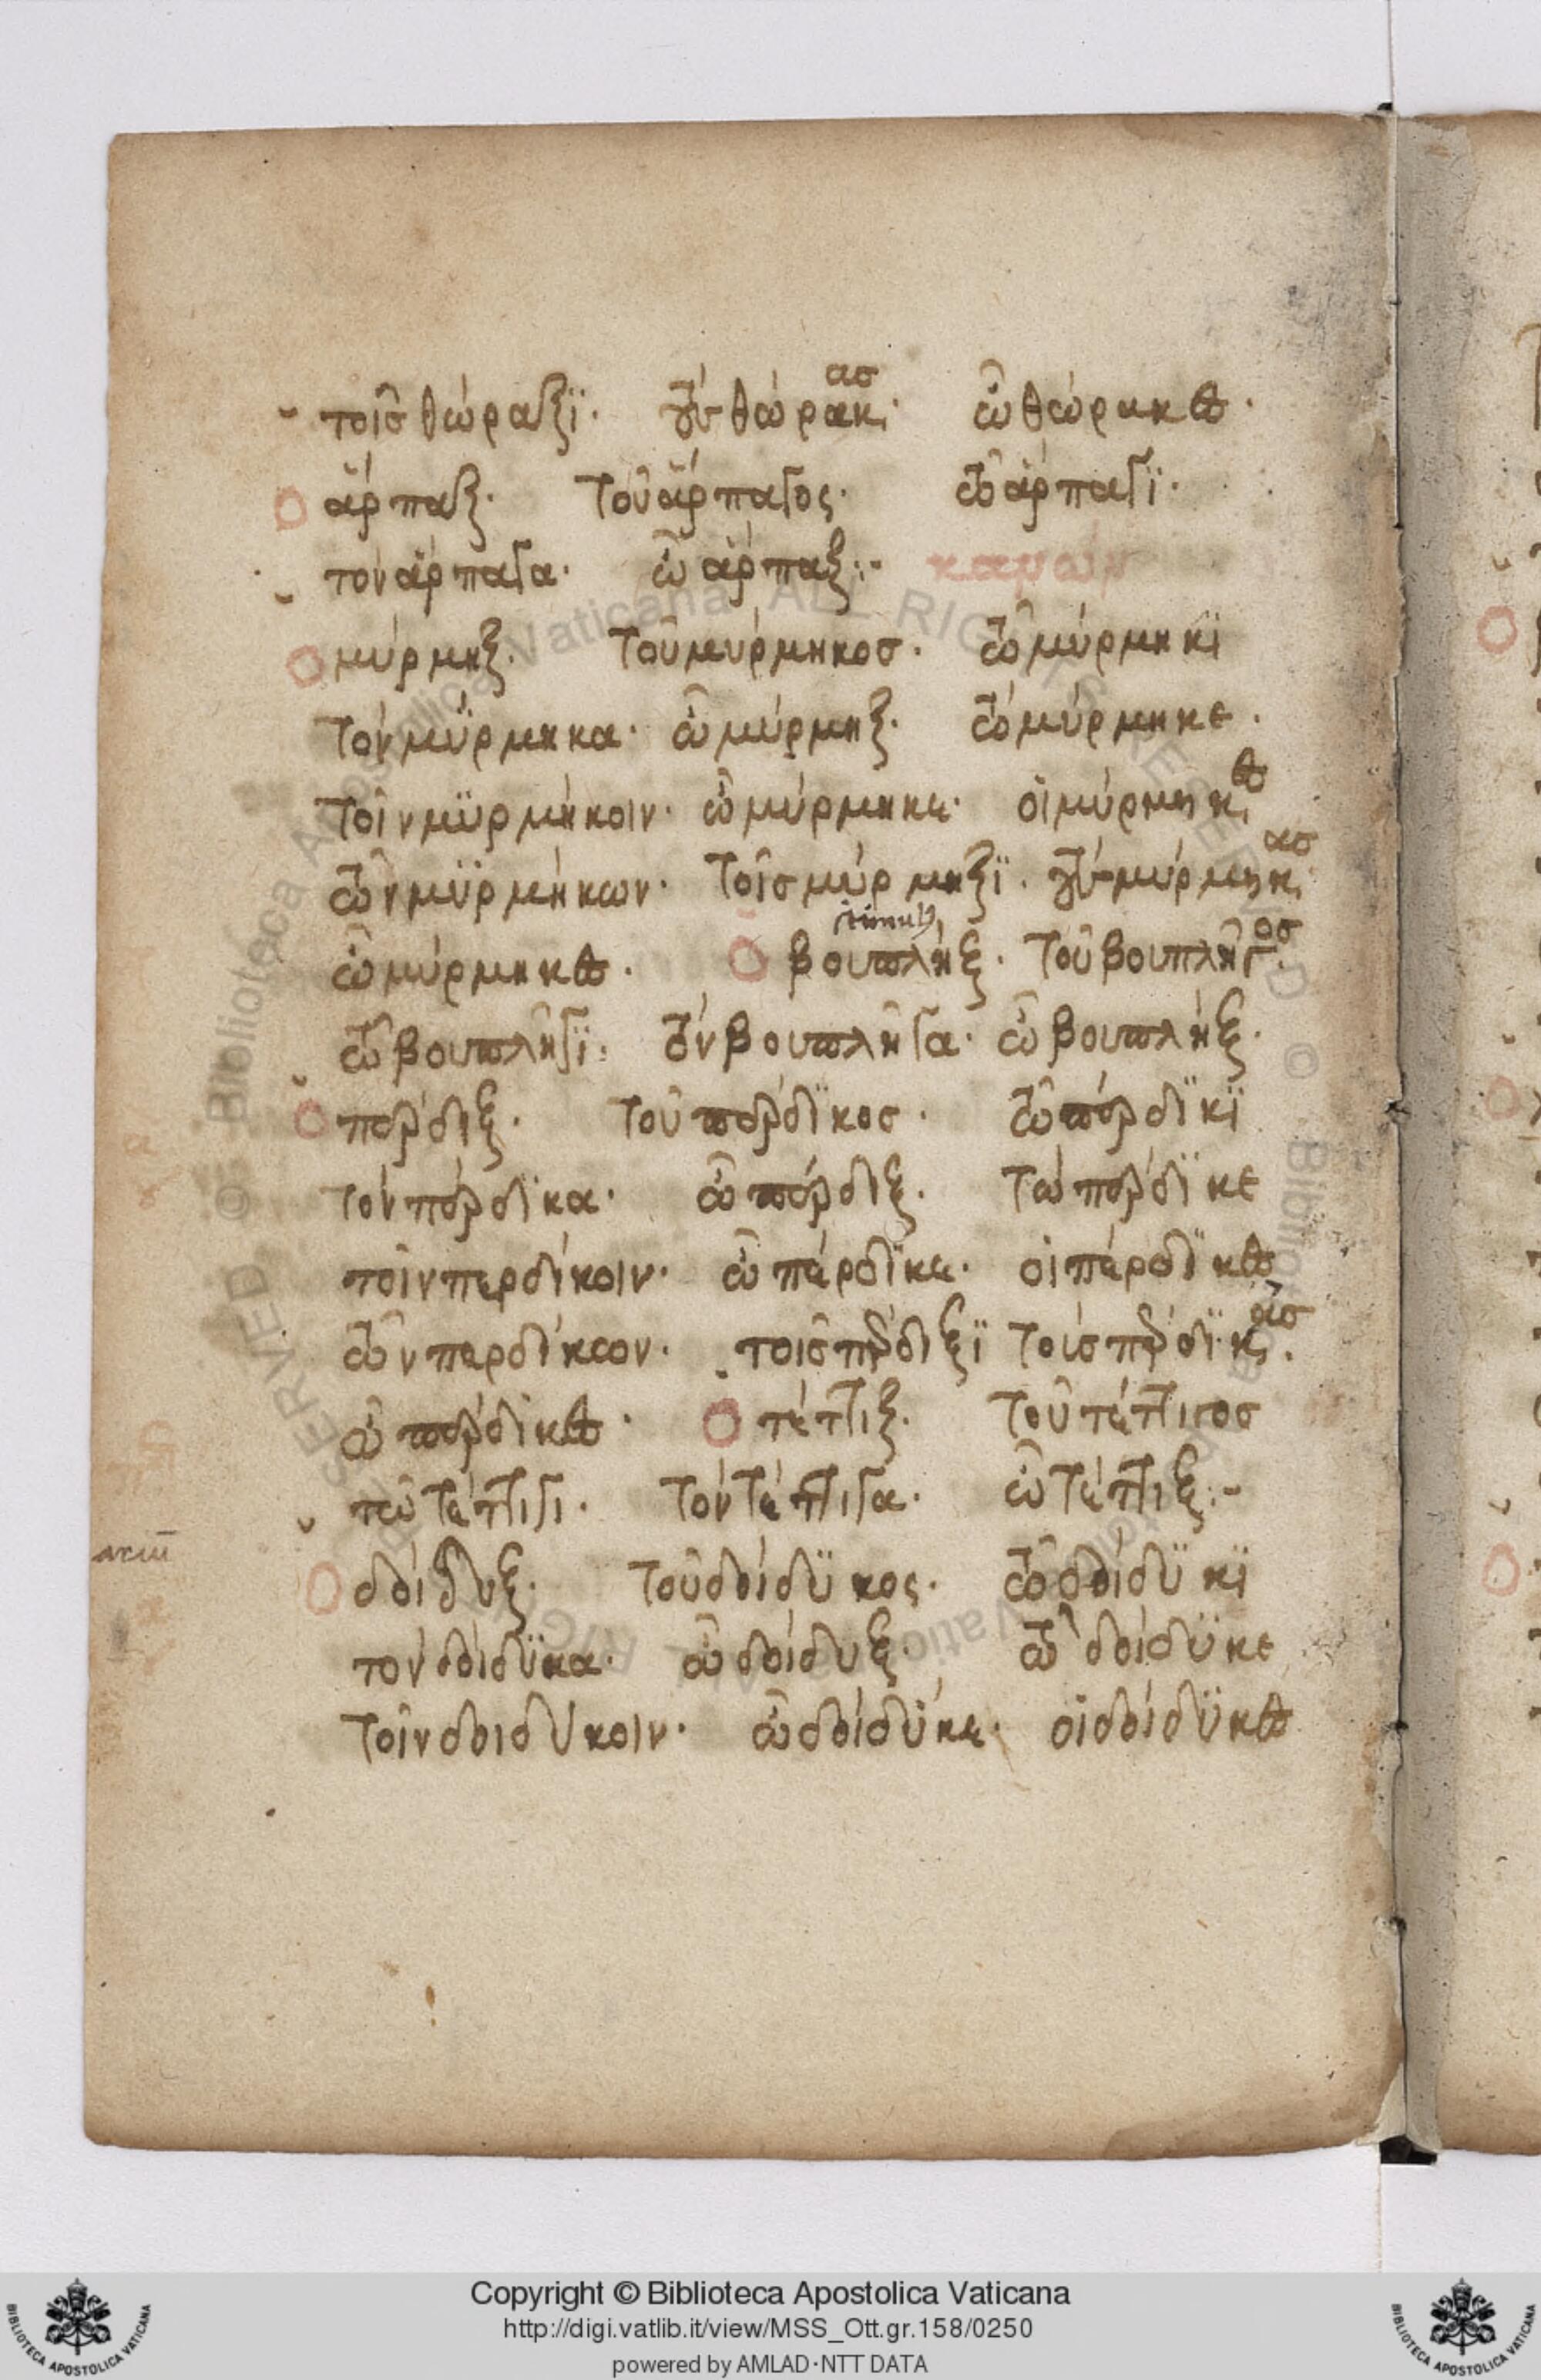 τοῖσ θώραξϊ· τοὺσ θώρακασ· ὦ θώρακεσ·
ὁ ἅρπαξ· τοῦ ἅρπαγος· τῶ ἅρπαγϊ·
τὸν ἅρπαγα· ὦ ἅρπαξ:-
ὁ μύρμηξ· τοῦ μύρμηκοσ· τῶ μύρμηκϊ
τὸν μύρμηκα· ὦ μύρμηξ· τὼ μύρμηκε·
τοῖν μϋρμήκοιν· ὦ μύρμηκε· οἱ μύρμηκεσ
τῶν μϋρμήκων· τοῖσ μύρμηξϊ· τοὺσ μύρμηκασ
ὦ μύρμηκεσ· ὁ βουπλήξ· τοῦ βουπλῆγοσ·
τῶ βουπλῆγϊ· τὸν βουπλῆγα· ὦ βουπλήξ·
ὁ πέρδιξ· τοῦ πέρδϊκοσ· τῶ πέρδϊκϊ
τὸν πέρδϊκα· ὦ πέρδιξ· τὼ πέρδϊκε
τοῖν περδίκοιν· ὦ πέρδϊκε· οἱ πέρδϊκεσ
τῶν περδίκων· τοῖσ πέρδιξϊ τοὺσ πέρδϊκασ·
ὦ πέρδϊκεσ· ὁ τέττιξ· τοῦ τέττιγοσ
τῶ τέττιγι· τὸν τέττιγα· ὦ τέττιξ:-
ὁ δοίδυξ· τοῦ δοίδϋκος· τῶ δοίδϋκϊ
τὸν δοίδϋκα· ὦ δοίδυξ· τὼ δοίδϋκε
τοῖν δοιδύκοιν· ὦ δοίδϋκε· οἱ δοίδϋκεσ
Copyright © Biblioteca Apostolica Vaticana
http://digi.vatlib.it/view/MSS_Ott.gr.158/0250
powered by AMLAD·NTT DATA